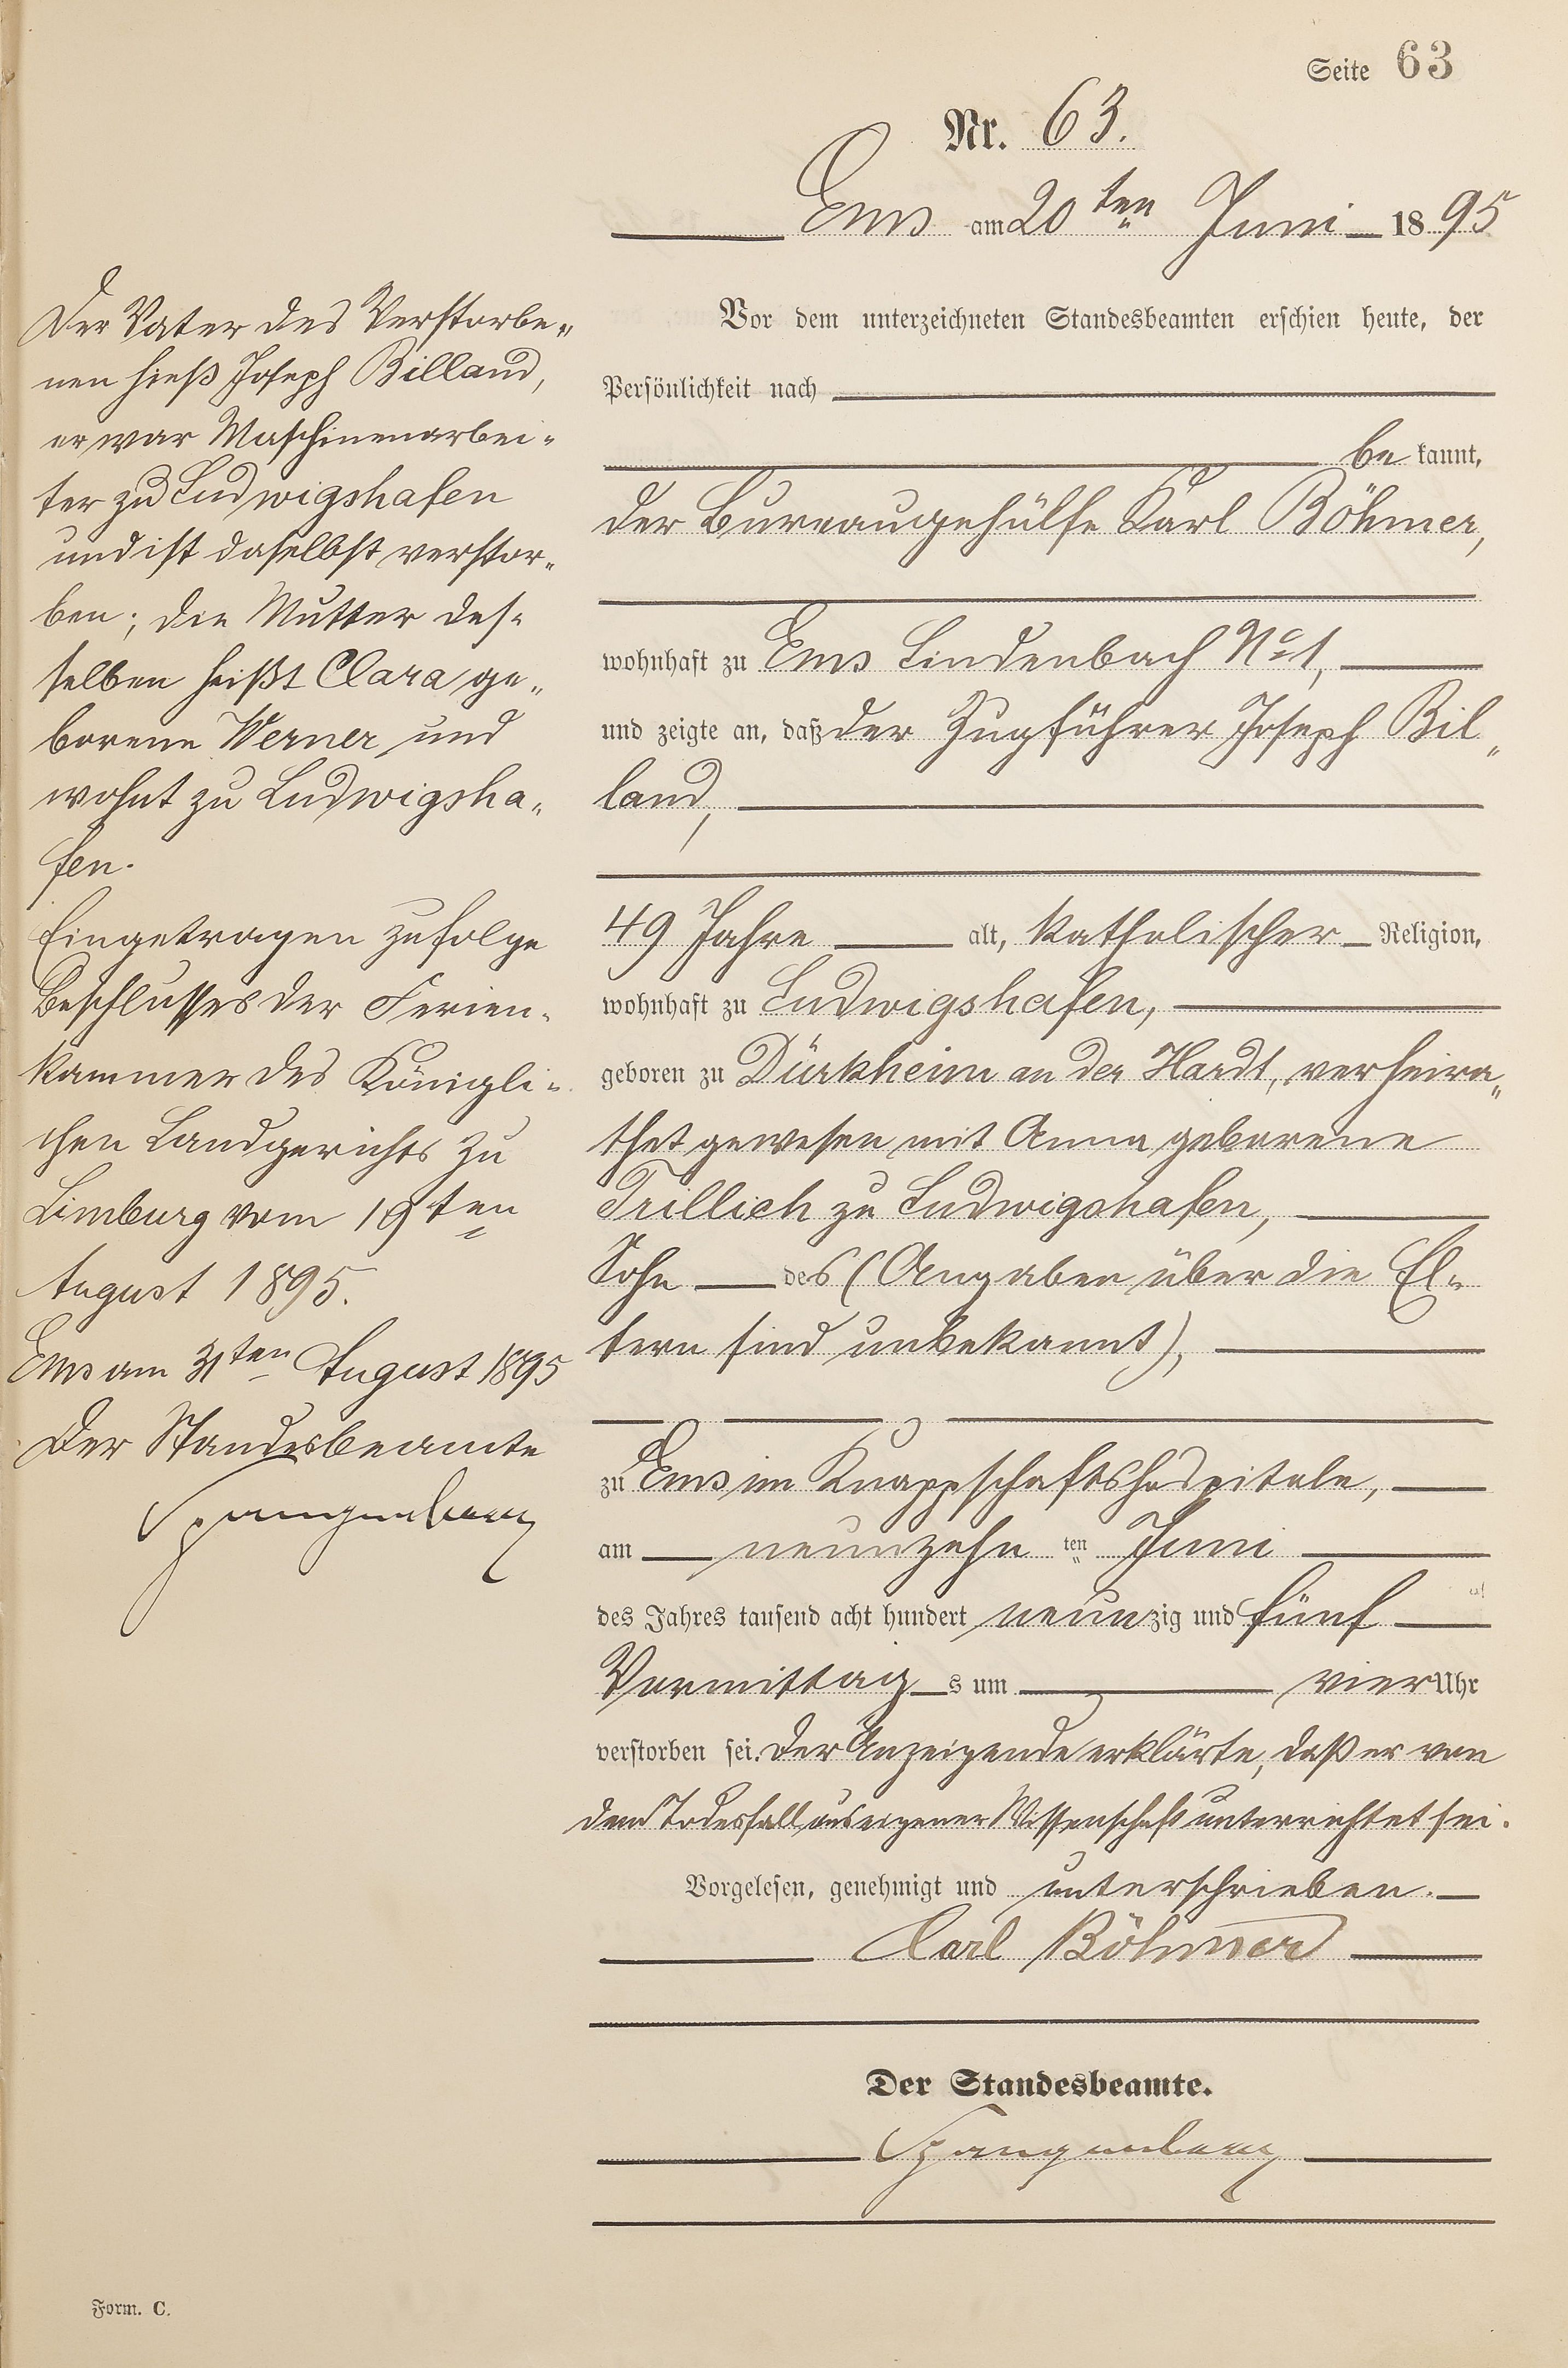 Seite 63
Nr. 63.
Ems am 20ten Juni 1895
Vor dem unterzeichneten Standesbeamten erschien heute, der
Persönlichkeit nach
be kannt,
der Bureaugehülfe Karl Böhmer,
wohnhaft zu Ems Lindenbach No 1,
und zeigte an, daß der Zugführer Joseph Bil„
land,
49 Jahre alt, katholischer Religion,
wohnhaft zu Ludwigshafen,
geboren zu Dürkheim an der Hardt, verheira„
thet gewesen mit Anna geborene
Trillich zu Ludwigshafen,
Sohn des (Angaben über die El„
tern sind unbekannt),
zu Ems im Knappschaftshospitale,
am neunzehn ten Juni
des Jahres tausend acht hundert neunzig und fünf
Vormittags um vier Uhr
verstorben sei. Der Anzeigende erklärte, daß er von
dem Todesfall aus eigener Wissenschaft unterrichtet sei.
Vorgelesen, genehmigt und unterschrieben.
Carl Böhmer
Der Standesbeamte.
Spangenberg
Der Vater des Verstorbe„
nen hieß Joseph Billand,
er war Maschinenarbei„
ter zu Ludwigshafen
und ist daselbst verstor„
ben; die Mutter des„
selben heißt Clara ge„
borene Werner und
wohnt zu Ludwigsha„
fen.
Eingetragen zufolge
Beschlusses der Ferien„
kammer des Königli„
chen Landgerichts zu
Limburg vom 19ten
August 1895.
Ems am 31ten August 1895
Der Standesbeamte
Spangenberg
Form. C.